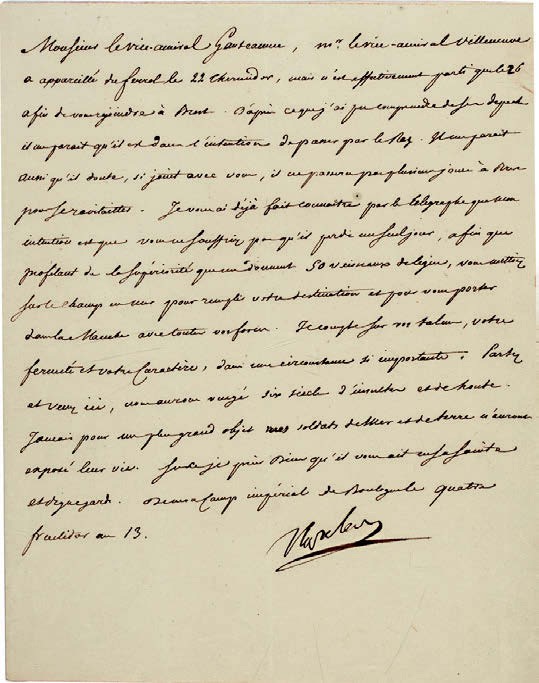 Monsieur le vice-amiral Ganteaume, mr. le vice-amiral Villeneuve
a appareillé du ferrol le 22 thermidor, mais n'est effectivement parti que le 26
afin de vous rejoindre à Brest. D'après ce que j'ai pu comprendre de ses depeches
il me parait qu'il est dans l'intention de passer par le Raz. Il me parait
aussi qu'il doute, si joint avec vous, il ne passera pas plusieurs jours à Brest
pour se ravitailler. Je vous ai déjà fait connaitre par le télégraphe que mon
intention est que vous ne souffriez pas qu'il perde un seul jour, afin que
profitant de la supériorité que me donnent 50 vaisseaux de ligne, vous mettiez
sur le champ en mer pour remplir votre destination et pour vous porter
dans la Manche avec toutes vos forces. Je compte sur vos talens, votre
fermeté et votre Caractère, dans une circonstance si importante. Partez
et venez ici, nous aurons vengé six siècles d'insultes et de honte.
Jamais pour un plus grand objet mes soldats de Mer et de terre n'auront
exposé leur vie. Sur ce je prie Dieu qu'il vous ait en sa Sainte
et digne garde. De mon Camp impérial de Boulogne le quatre
fructidor an 13.